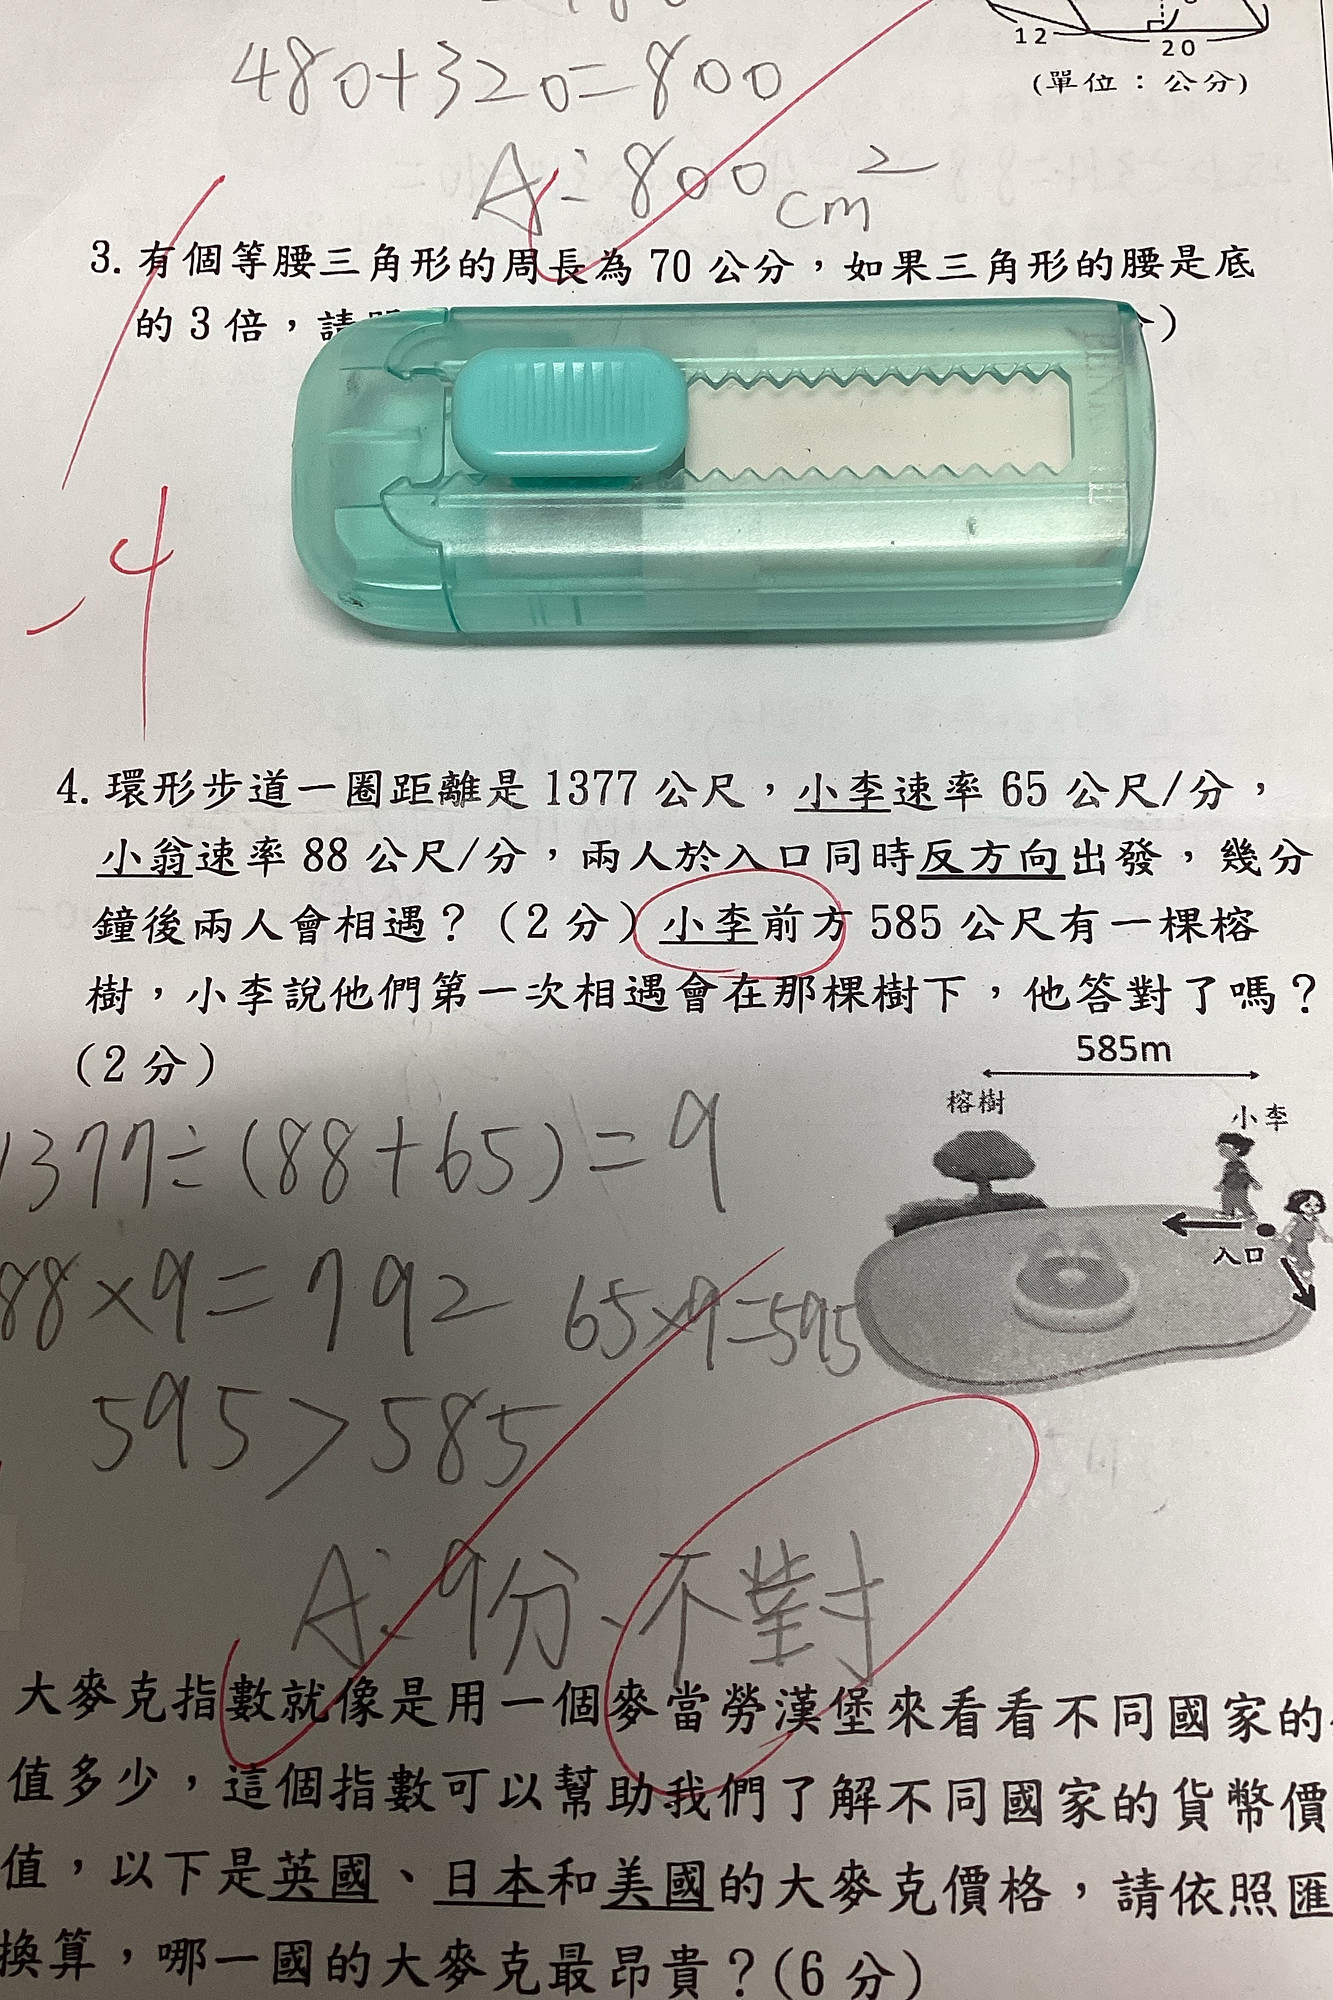 12
20
(單位：公分)
480+320=800
A:800cm²
3. 有個等腰三角形的周長為 70 公分，如果三角形的腰是底
的 3 倍，請
)
-4
4. 環形步道一圈距離是 1377 公尺，小李速率 65 公尺/分，
小翁速率 88 公尺/分，兩人於入口同時反方向出發，幾分
鐘後兩人會相遇？（2 分）小李前方 585 公尺有一棵榕
樹，小李說他們第一次相遇會在那棵樹下，他答對了嗎？
（2 分）
585m
榕樹
小李
入口
1377÷(88+65)=9
88×9=792 65×9=595
595>585
A:9分、不對
大麥克指數就像是用一個麥當勞漢堡來看看不同國家的
值多少，這個指數可以幫助我們了解不同國家的貨幣價
值，以下是英國、日本和美國的大麥克價格，請依照匯
換算，哪一國的大麥克最昂貴？(6 分)